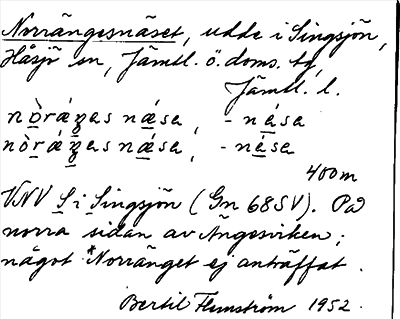 Norrängesnäset, udde i Singsjön,
Håsjö sn, Jämtl. ö. doms. tg,
Jämtl. l.
nòráŋas næsa, -næsa
nòráŋas næsa, -næsa
400 m
VNV S i Singsjön (Gn 68 SV). På
norra sidan av Ängesviken;
något *Norränget ej anträffat.
Bertil Flemström 1952.